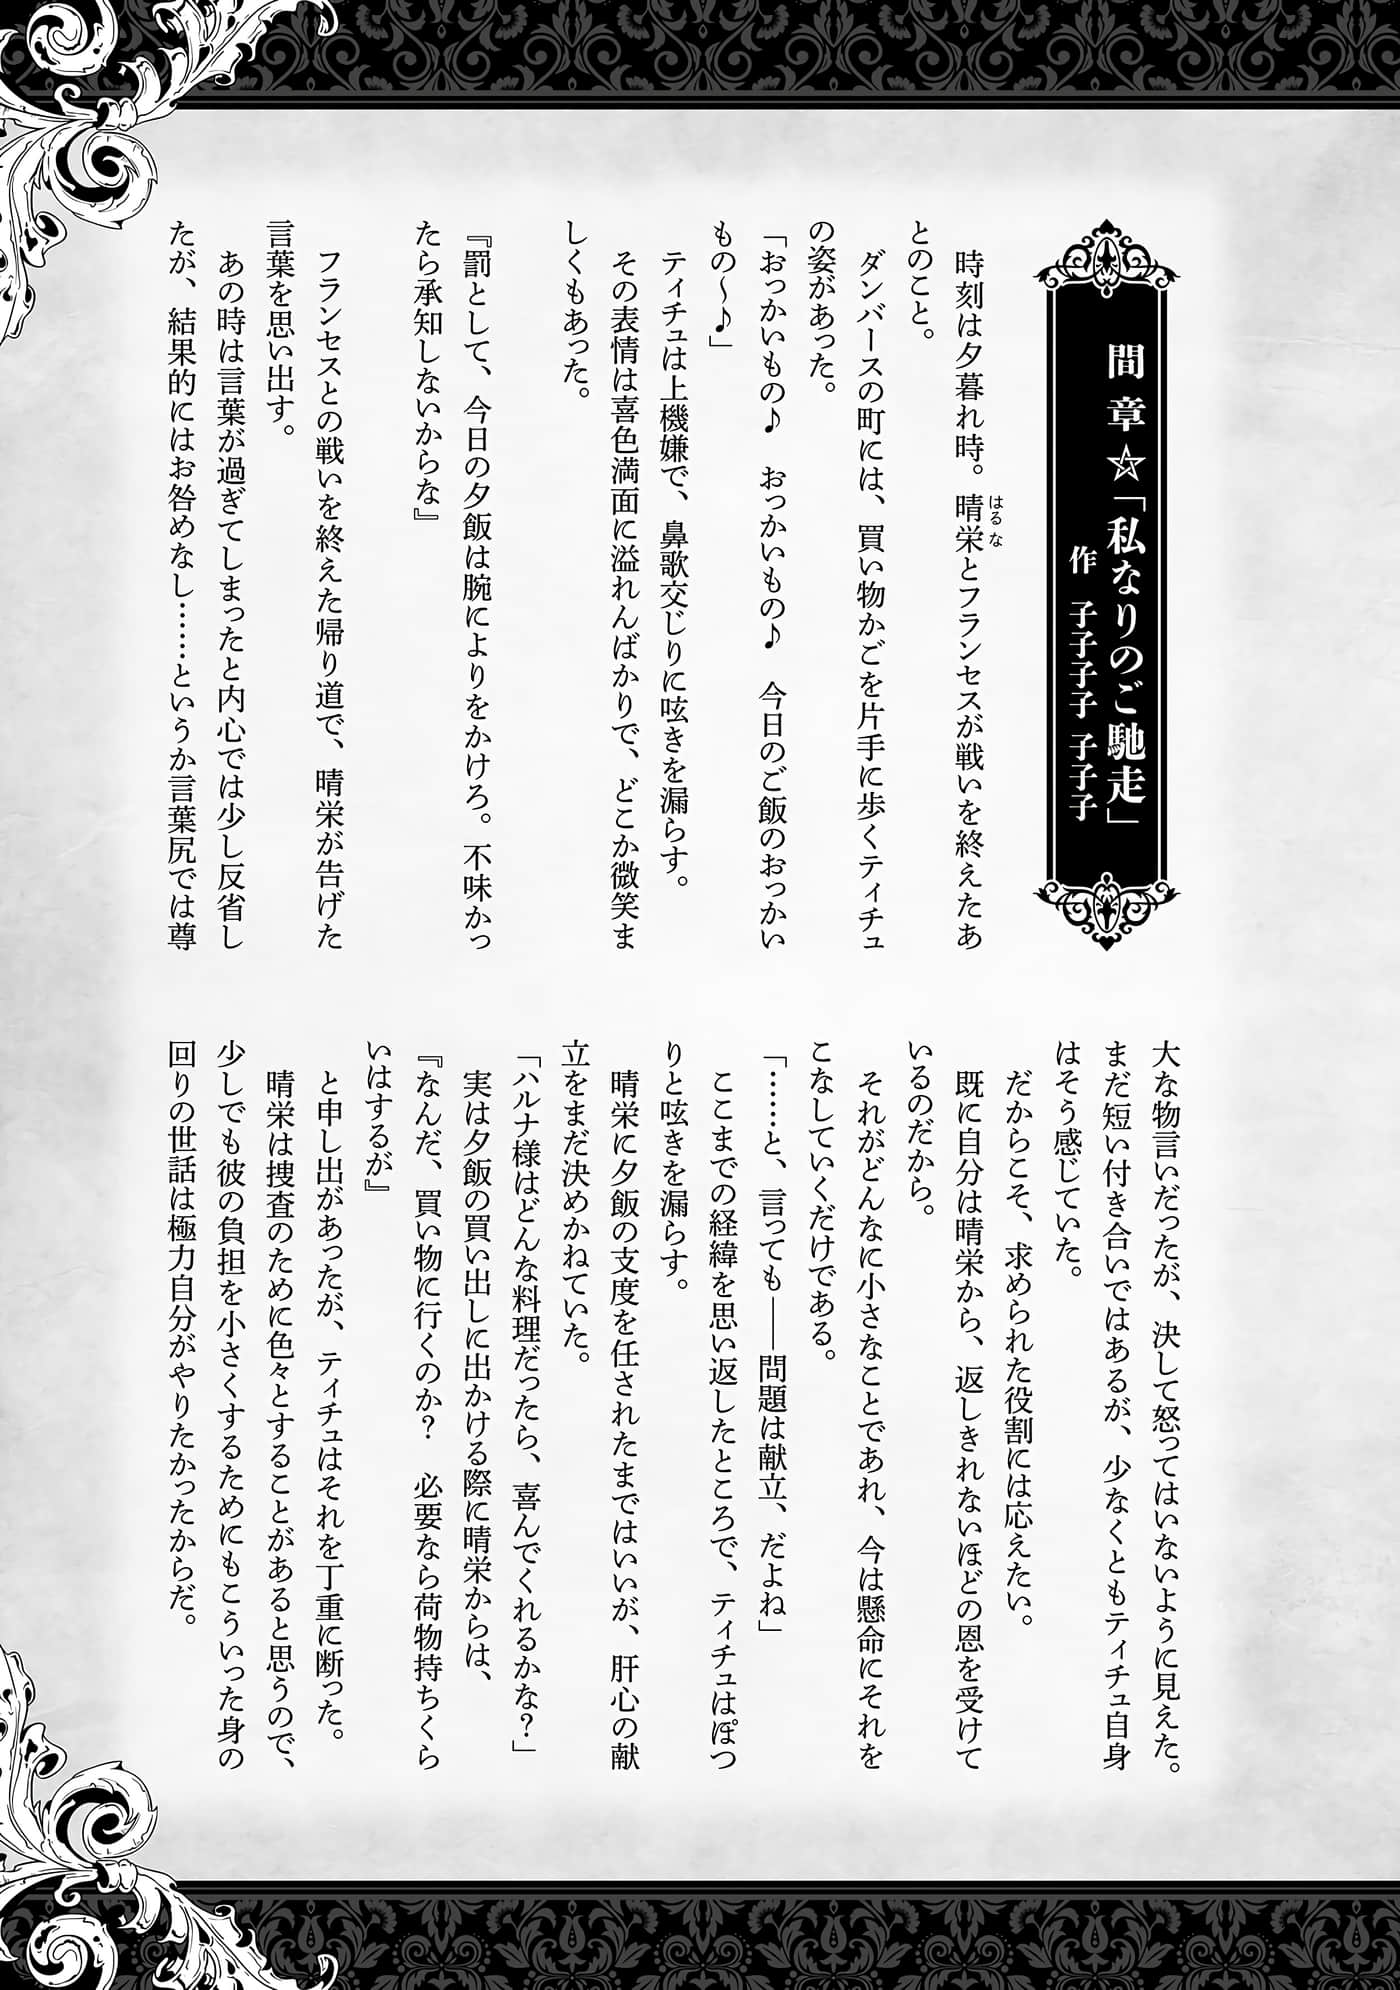 間章☆「私なりのご馳走」
作 子子子子 子子子
時刻は夕暮れ時。晴栄とフランセスが戦いを終えたあ
はるな
とのこと。
ダンバースの町には、買い物かごを片手に歩くティチュ
の姿があった。
「おっかいもの♪　おっかいもの♪　今日のご飯のおっかい
もの～♪」
ティチュは上機嫌で、鼻歌交じりに呟きを漏らす。
その表情は喜色満面に溢れんばかりで、どこか微笑ま
しくもあった。
『罰として、今日の夕飯は腕によりをかけろ。不味かっ
たら承知しないからな』
フランセスとの戦いを終えた帰り道で、晴栄が告げた
言葉を思い出す。
あの時は言葉が過ぎてしまったと内心では少し反省し
たが、結果的にはお咎めなし……というか言葉尻では尊
大な物言いだったが、決して怒ってはいないように見えた。
まだ短い付き合いではあるが、少なくともティチュ自身
はそう感じていた。
だからこそ、求められた役割には応えたい。
既に自分は晴栄から、返しきれないほどの恩を受けて
いるのだから。
それがどんなに小さなことであれ、今は懸命にそれを
こなしていくだけである。
「……と、言っても――問題は献立、だよね」
ここまでの経緯を思い返したところで、ティチュはぽつ
りと呟きを漏らす。
晴栄に夕飯の支度を任されたまではいいが、肝心の献
立をまだ決めかねていた。
「ハルナ様はどんな料理だったら、喜んでくれるかな？」
実は夕飯の買い出しに出かける際に晴栄からは、
『なんだ、買い物に行くのか？　必要なら荷物持ちくら
いはするが』
と申し出があったが、ティチュはそれを丁重に断った。
晴栄は捜査のために色々とすることがあると思うので、
少しでも彼の負担を小さくするためにもこういった身の
回りの世話は極力自分がやりたかったからだ。